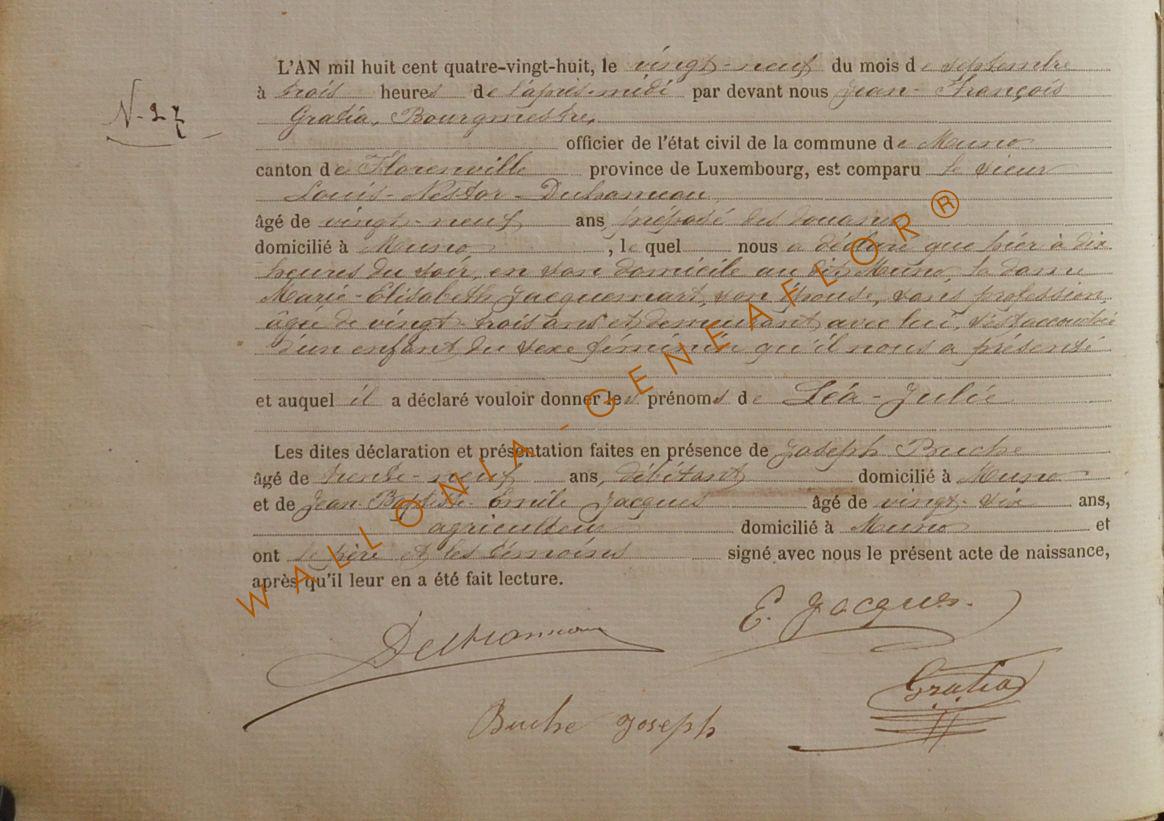 N. 27
L'AN mil huit cent quatre-vingt-huit, le vingt-neuf du mois de septembre
à trois heures de l'après-midi par devant nous Jean-François
Gratia, Bourgmestre,
officier de l'état civil de la commune de Muno
canton de Florenville province de Luxembourg, est comparu le sieur
Louis-Nestor Duhameau
âgé de vingt-neuf ans, préposé des douanes
domicilié à Muno, lequel nous a déclaré que hier à dix
heures du soir, en son domicile au dit Muno, la dame
Marie-Elisabeth Jacquemart, son épouse, sans profession,
âgée de vingt-trois ans et demeurant avec lui, s'est accouchée
d'un enfant du sexe féminin qu'il nous a présenté
et auquel il a déclaré vouloir donner les prénoms de Léa-Julie
Les dites déclaration et présentation faites en présence de Joseph Buche
âgé de trente-neuf ans, débitant domicilié à Muno
et de Jean-Baptiste-Emile Jacques âgé de vingt-six ans,
agriculteur domicilié à Muno et
ont le père et les témoins signé avec nous le présent acte de naissance,
après qu'il leur en a été fait lecture.
E. Jacques.
Gratia
Buche Joseph
WALLONIA-GENEAFLOR®